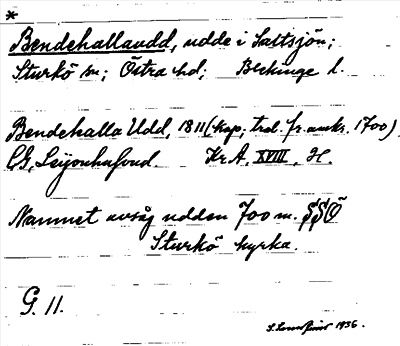 *
Bendehallaudd, udde i Saltsjön;
Sturkö sn; Östra hd; Blekinge l.
Bendehalla Udd, 1811 (kop; trol. fr. omkr. 1700)
CG. Leijonhufvud. Kr.A. XVIII, H.
Namnet avsåg udden 700 m. SSÖ
Sturkö kyrka.
G. 11.
1936.